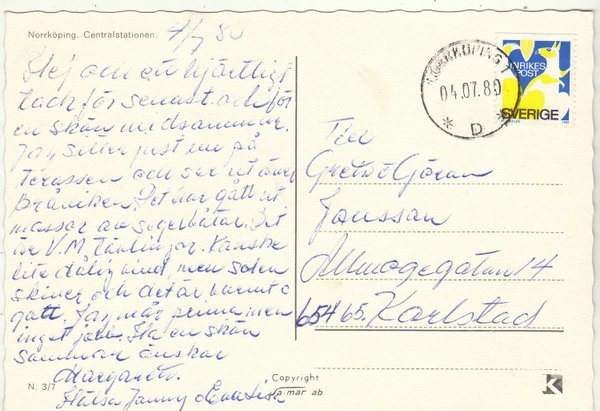 Norrköping. Centralstationen.
4/7 80
Hej och ett hjärtligt
tack för senast. och för
en skön midsommar.
Jag sitter just nu på
terassen och ser ut över
Bråviken. Det har gått ut
massor av segerbåtar. Det
är V.M Tävlingar. Kanske
lite dålig vind, men solen
skiner och det är varmt o
gott. Jag mår prima men
inget jobb. Ha en skön
sommar önskar
Margareta.
Hälsa Janny
N. 3/7
NORRKÖPING 1
04.07.80
* D *
INRIKES
POST
SVERIGE
Till
Greta o Göran
Jonsson
Allmogegatan 14
654 65. Karlstad
Copyright
fa-mar ab
K